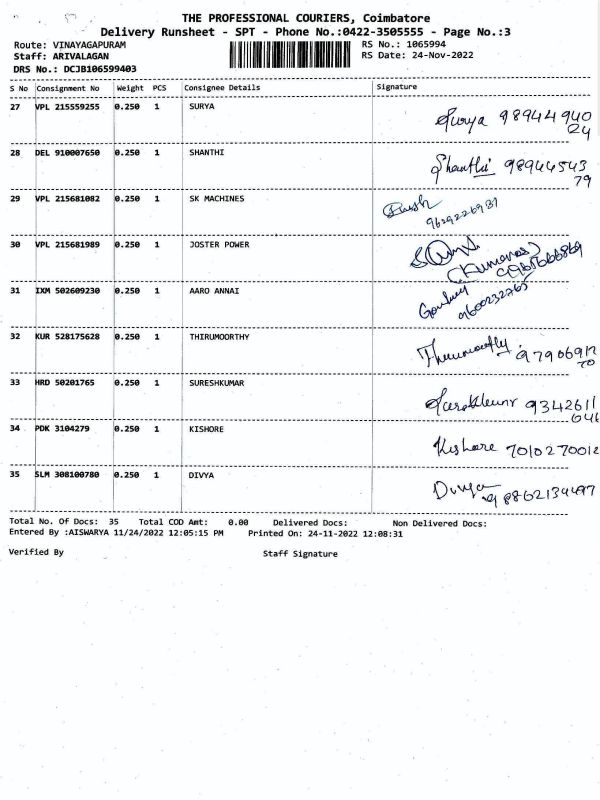 THE PROFESSIONAL COURIERS, Coimbatore
Delivery Runsheet - SPT - Phone No.:0422-3505555 - Page No.:3
Route: VINAYAGAPURAM RS No.: 1065994
Staff: ARIVALAGAN RS Date: 24-Nov-2022
DRS No.: DCJB106599403
S No Consignment No Weight PCS Consignee Details Signature
27 VPL 215559255 0.250 1 SURYA Surya 98944940
24
28 DEL 910007650 0.250 1 SHANTHI Shanthi 98944543
79
29 VPL 215681082 0.250 1 SK MACHINES
9629226987
30 VPL 215681989 0.250 1 JOSTER POWER
(Kumanas)
31 IXM 502609230 0.250 1 AARO ANNAI
9600232765
32 KUR 528175628 0.250 1 THIRUMOORTHY Thirumoorthy 97906912
70
33 HRD 50201765 0.250 1 SURESHKUMAR 9342611
046
34 PDK 3104279 0.250 1 KISHORE Kishore 7010270012
35 SLM 308100780 0.250 1 DIVYA Divya
Total No. Of Docs: 35 Total COD Amt: 0.00 Delivered Docs: Non Delivered Docs:
Entered By :AISWARYA 11/24/2022 12:05:15 PM Printed On: 24-11-2022 12:08:31
Verified By Staff Signature